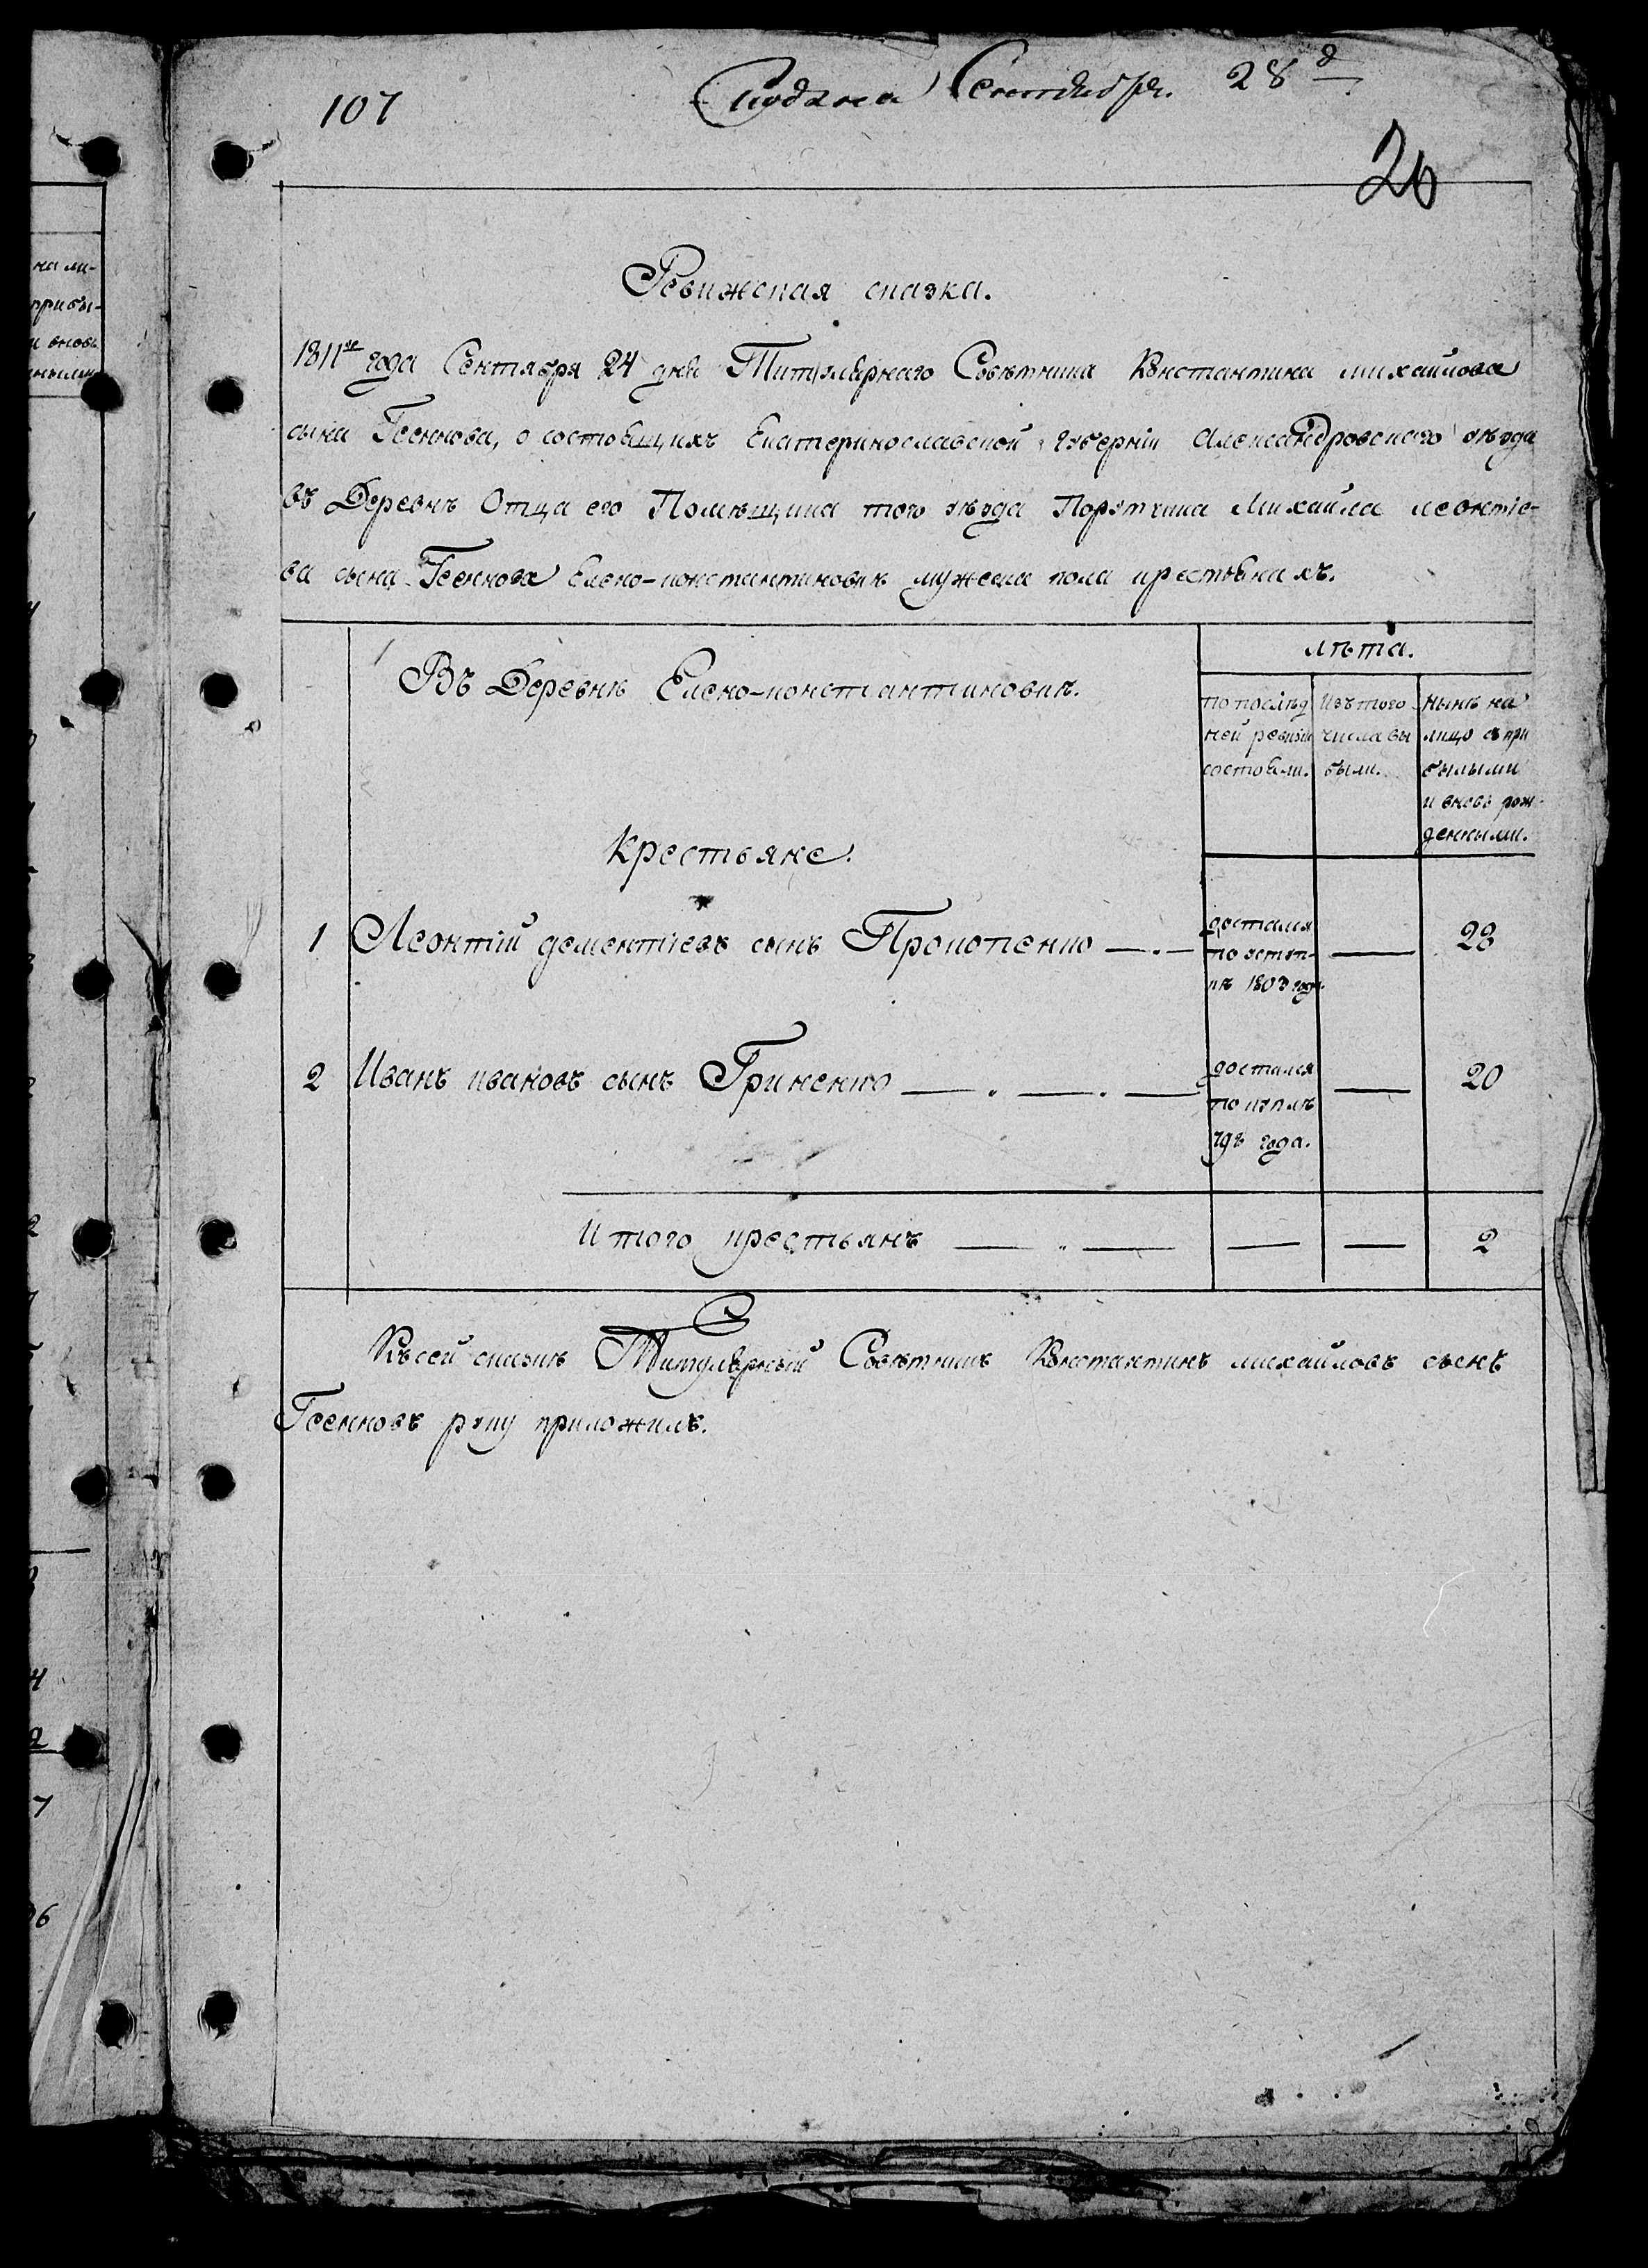 107
Подана Сентября. 28 д
26
Ревижская сказка.
1811го года Сентября 24 дня Титулярнаго Советника Константина михайлова
сына Гсеннова, о состоящихъ Екатеринославской губерніи Александровскаго уѣзда
въ Деревнѣ Отца его Помѣщика того уѣзда Порутчика Михайла леонтіе-
ва сына Гсеннова Елено-константиновкѣ мужеска пола крестьянахъ.
Въ Деревнѣ Елено-константиновкѣ.
лѣта.
по послѣд
ней ревизіи
состояли.
Изъ того
числа вы
были.
Нынѣ на
лицо съ при
былыми
и вновь рож
денными.
Крестьяне.
1 Леонтій дементіевъ сынъ Прокопенко — 28
достался
по уступ-
кѣ 1803 года
2 Иванъ ивановъ сынъ Гриненко — 20
достался
по купле
года.
Итого крестьянъ — — — 2
Къ сей сказкѣ Титулярный Советникъ Константинъ михайловъ сынъ
Гсенновъ руку приложилъ.